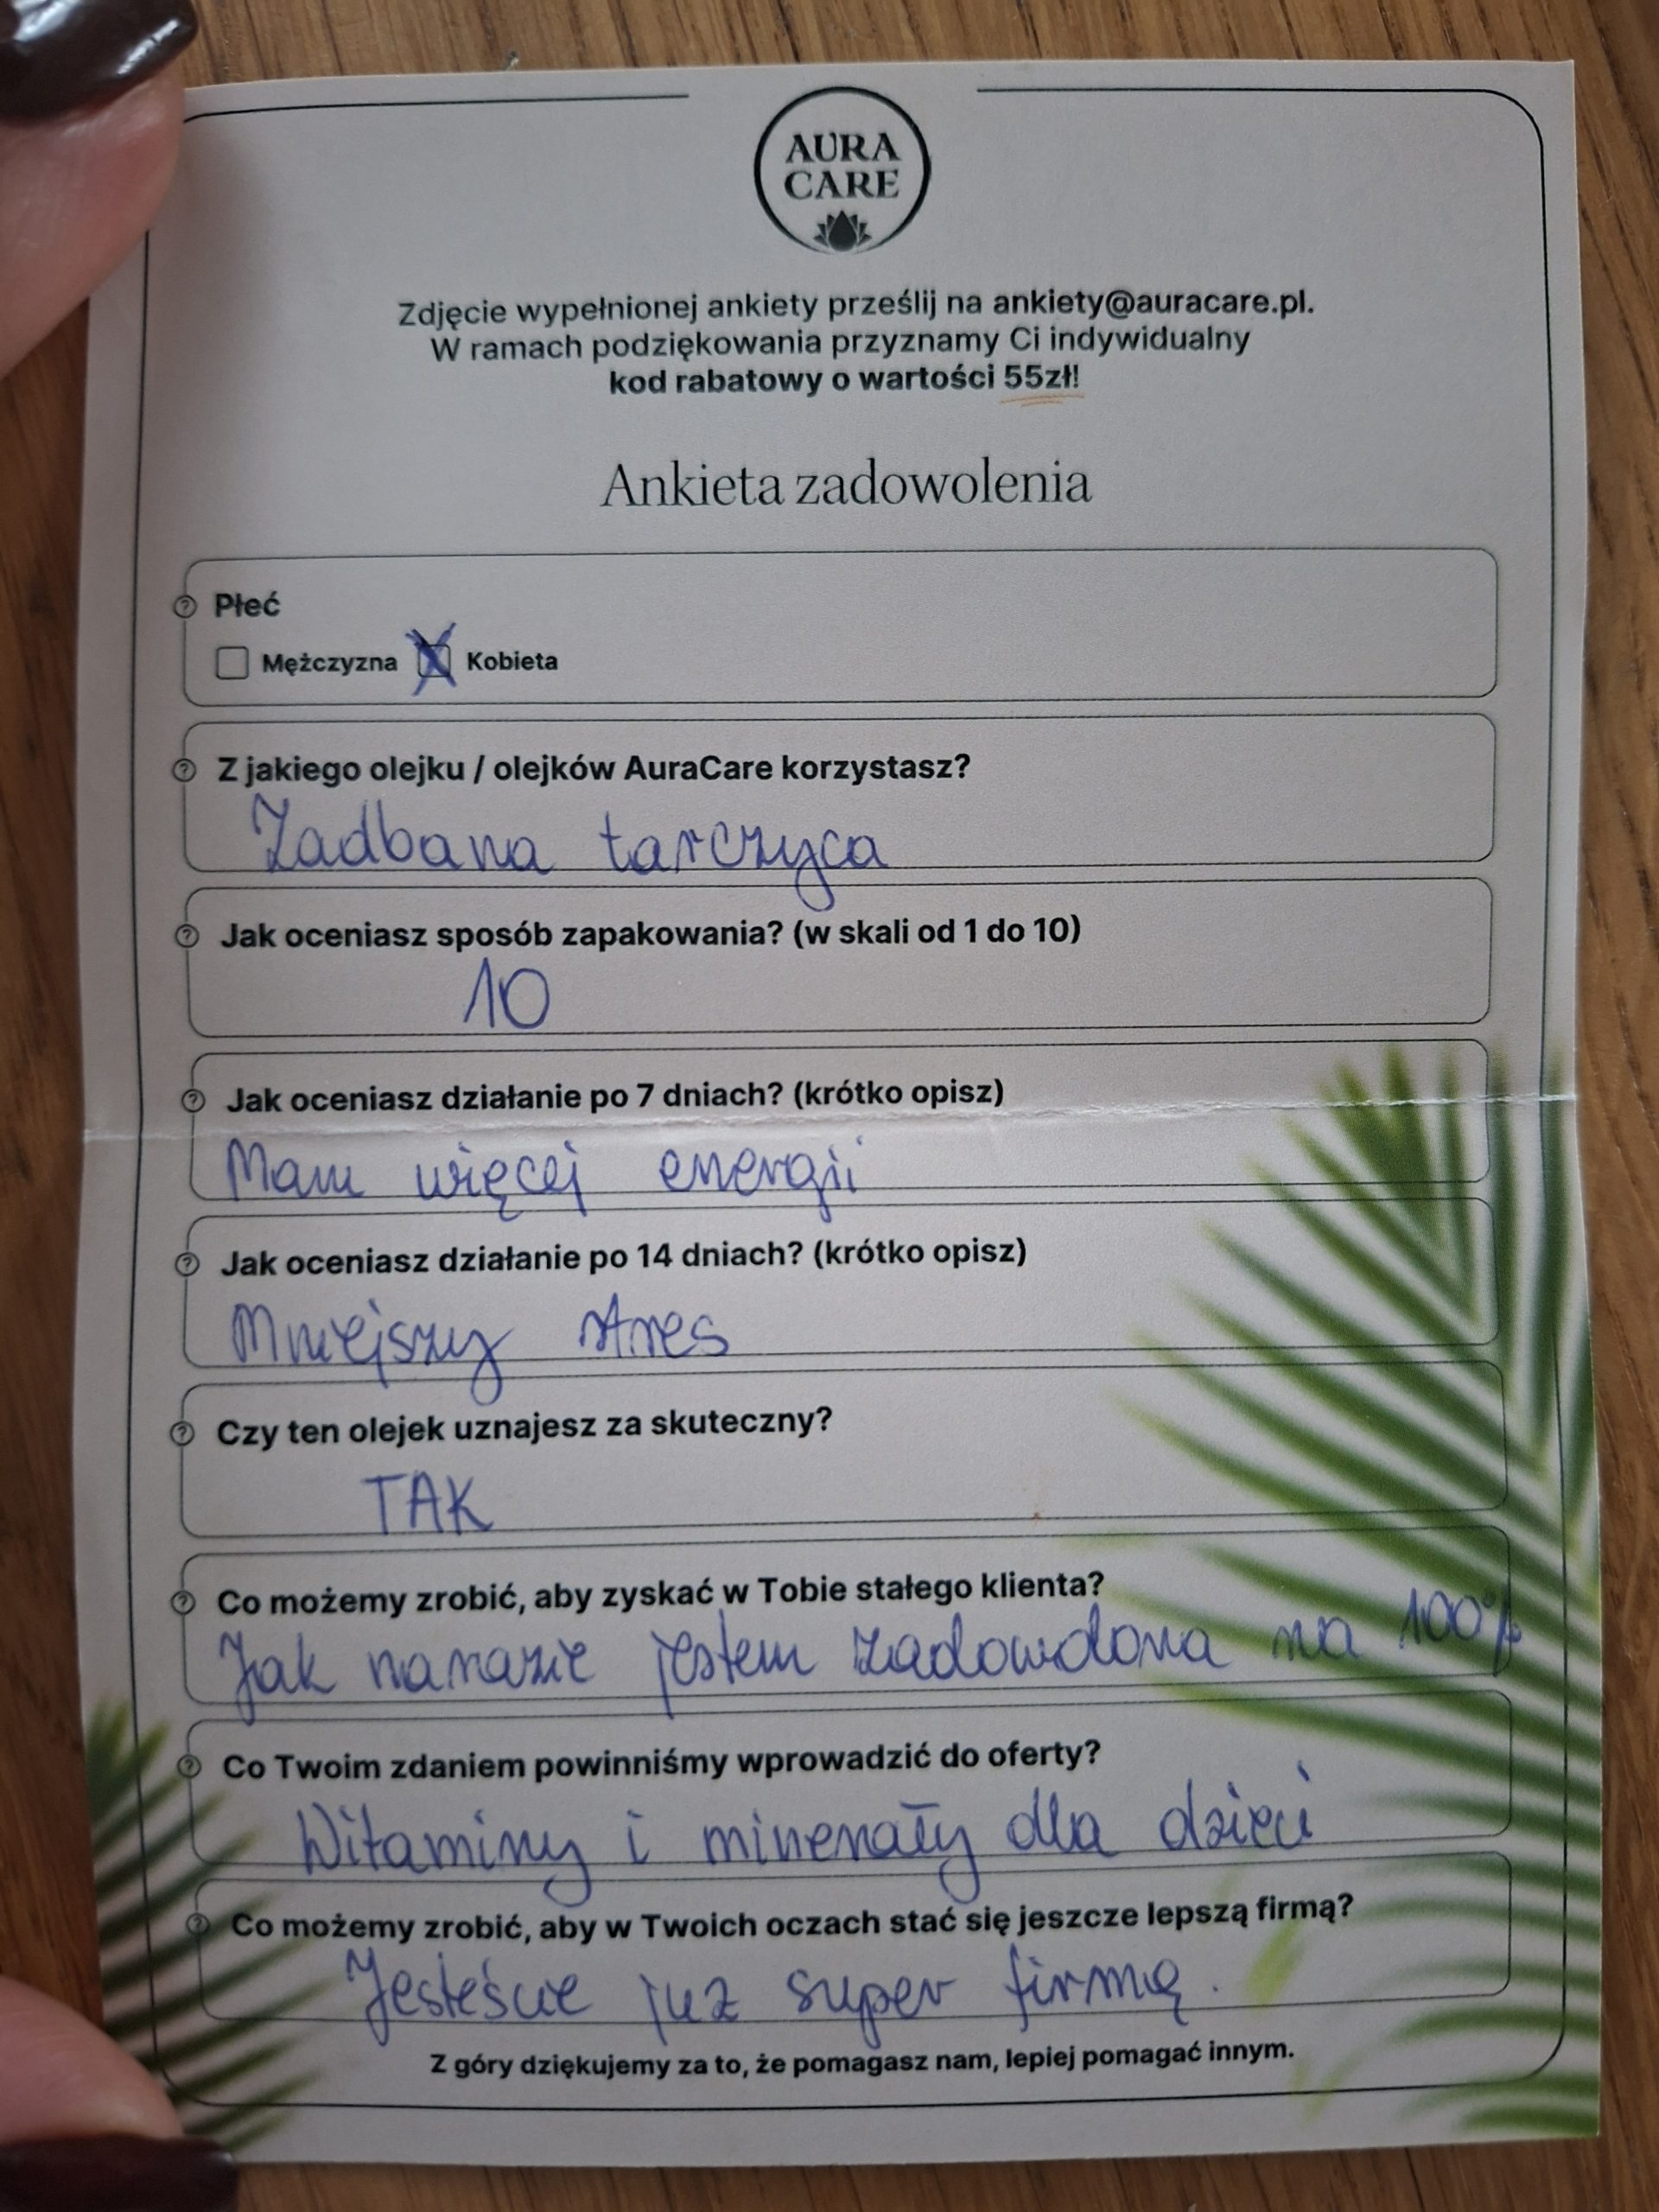 AURA
CARE
Zdjęcie wypełnionej ankiety prześlij na ankiety@auracare.pl.
W ramach podziękowania przyznamy Ci indywidualny
kod rabatowy o wartości 55zł!
Ankieta zadowolenia
Płeć
Mężczyzna X Kobieta
Z jakiego olejku / olejków AuraCare korzystasz?
Zadbana tarczyca
Jak oceniasz sposób zapakowania? (w skali od 1 do 10)
10
Jak oceniasz działanie po 7 dniach? (krótko opisz)
Mam więcej energii
Jak oceniasz działanie po 14 dniach? (krótko opisz)
Mniejszy stres
Czy ten olejek uznajesz za skuteczny?
TAK
Co możemy zrobić, aby zyskać w Tobie stałego klienta?
Jak narazie jestem zadowolona na 100%
Co Twoim zdaniem powinniśmy wprowadzić do oferty?
Witaminy i minerały dla dzieci
Co możemy zrobić, aby w Twoich oczach stać się jeszcze lepszą firmą?
Jesteście już super firmą.
Z góry dziękujemy za to, że pomagasz nam, lepiej pomagać innym.